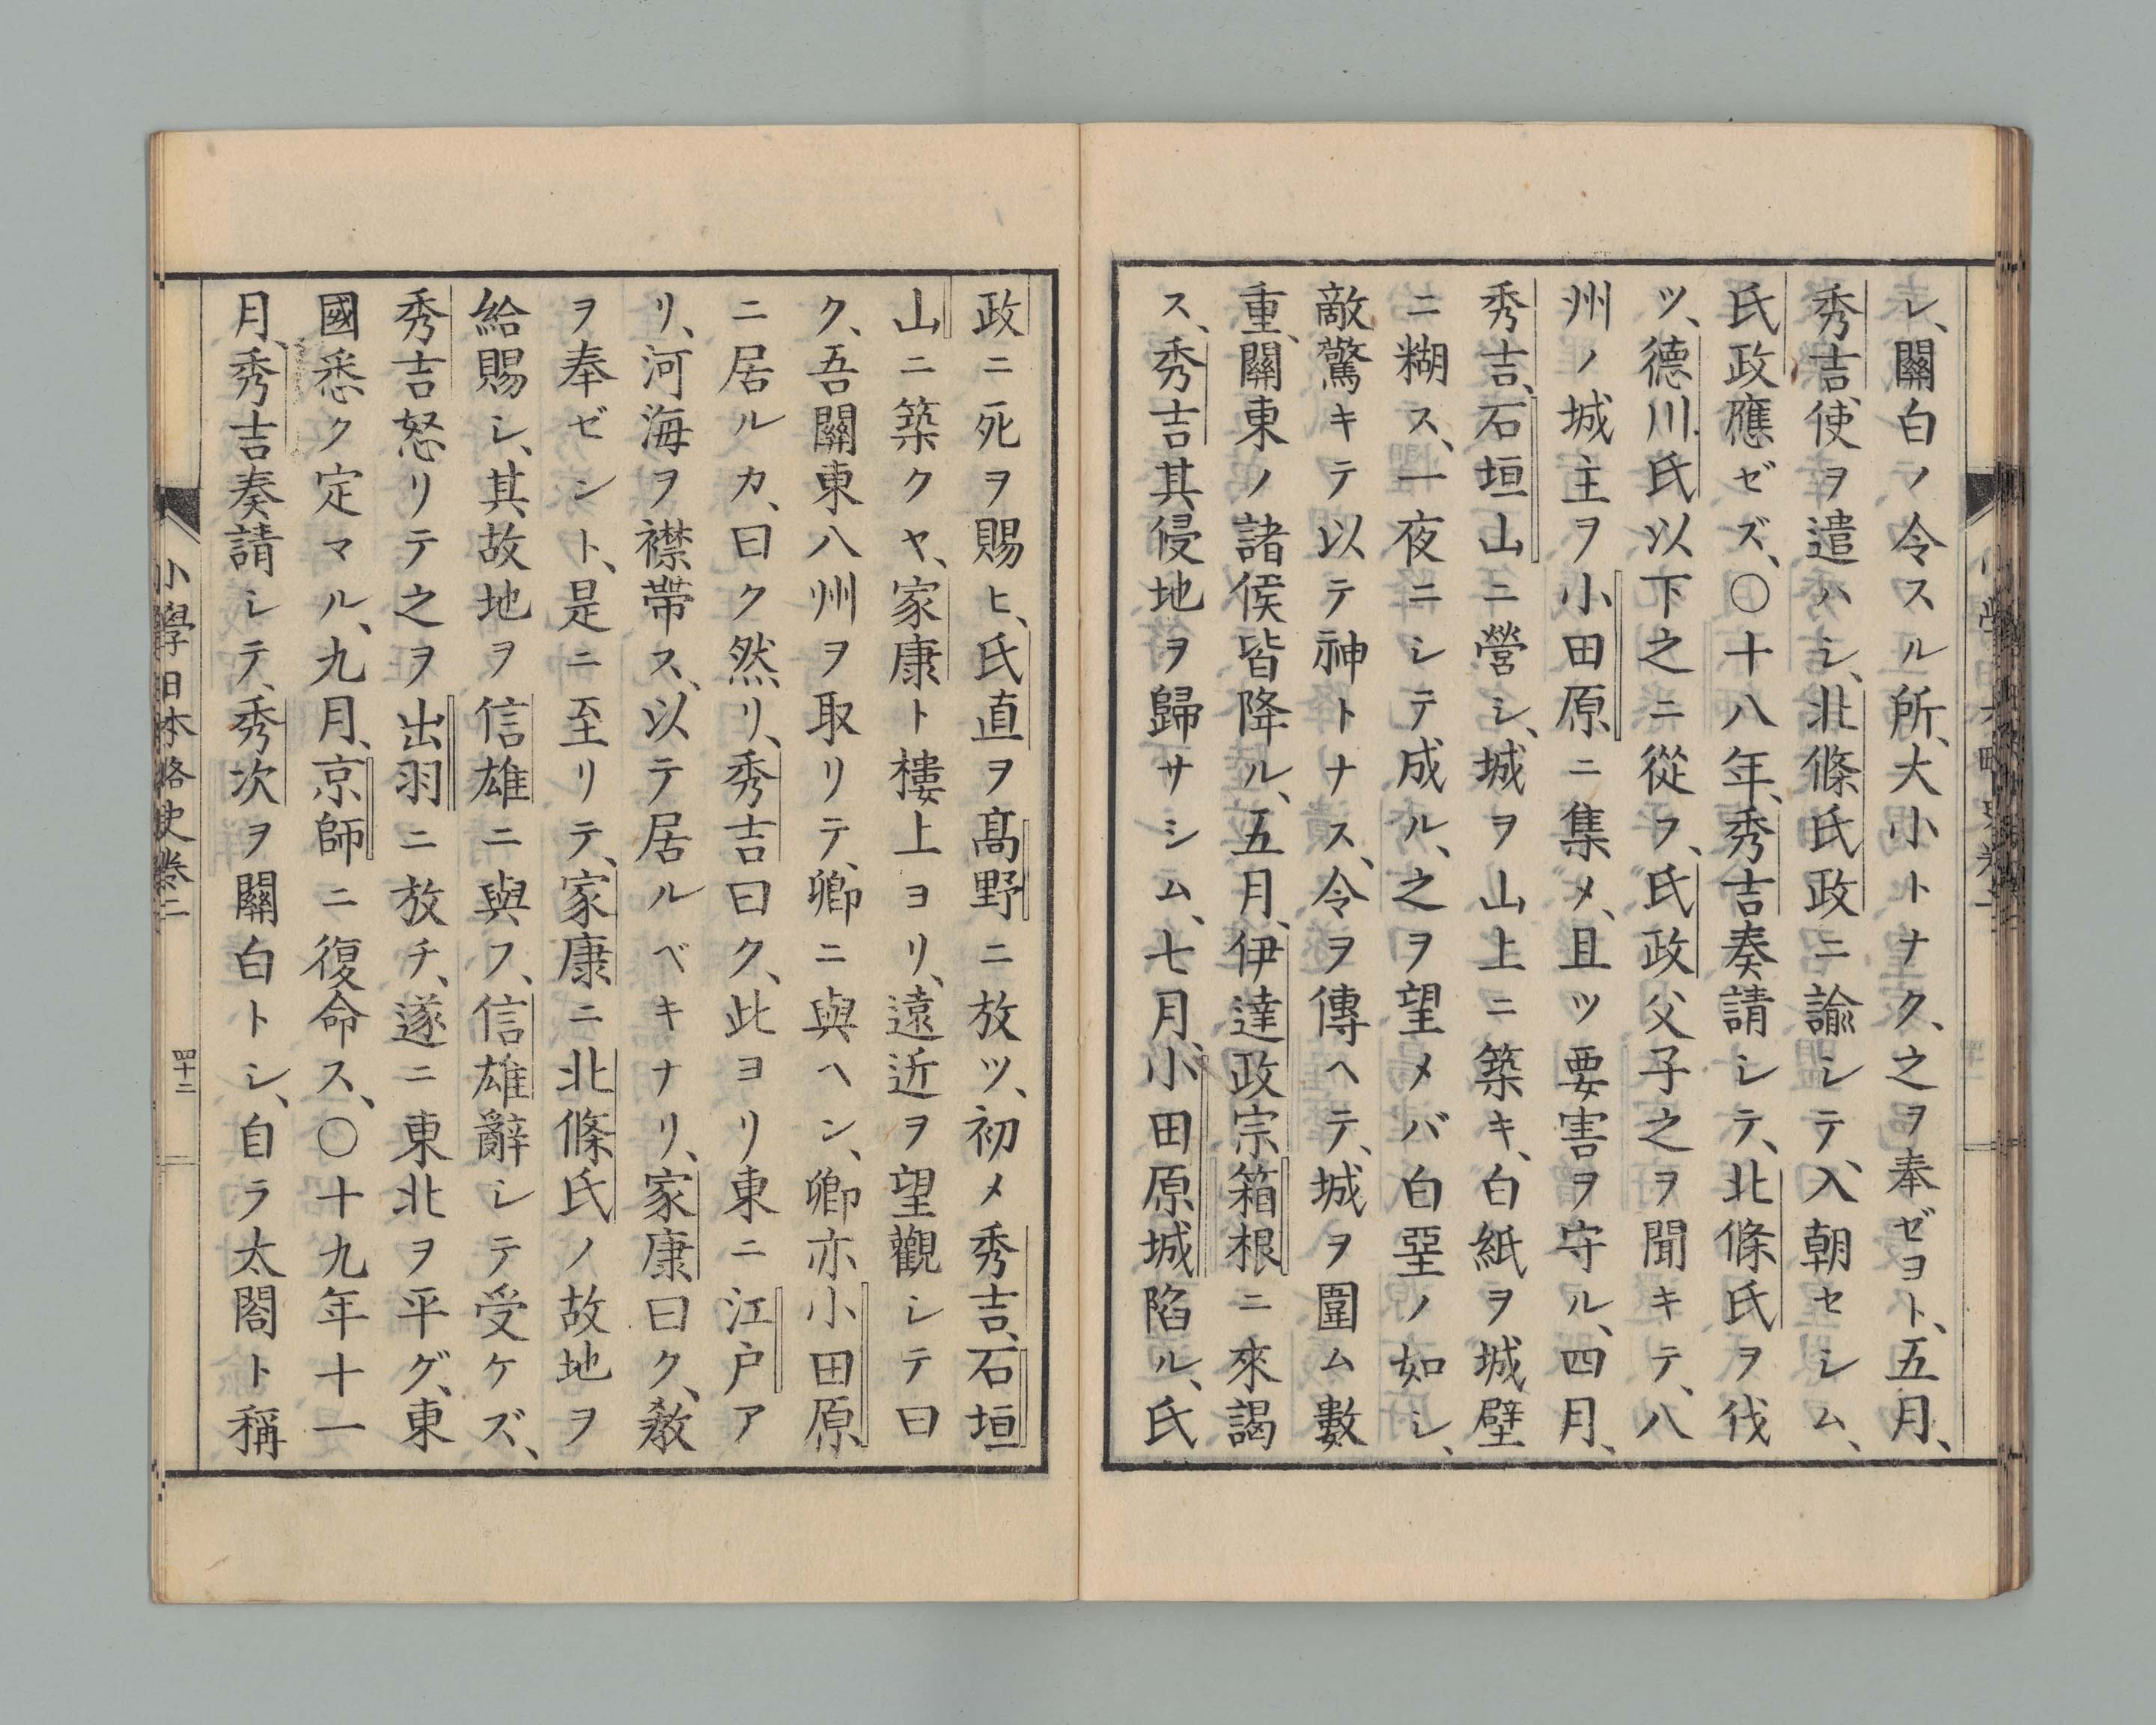 レ、關白ノ令スル所、大小トナク、之ヲ奉ゼヨト、五月、
秀吉、使ヲ遣ハシ、北條氏政ニ諭シテ、入朝セシム、
氏政應ゼズ、〇十八年、秀吉奏請シテ、北條氏ヲ伐
ツ、德川氏以下之ニ從フ、氏政父子之ヲ聞キテ、八
州ノ城主ヲ小田原ニ集メ、且ツ要害ヲ守ル、四月、
秀吉、石垣山ニ營シ、城ヲ山上ニ築キ、白紙ヲ城壁
ニ糊ス、一夜ニシテ成ル、之ヲ望メバ白堊ノ如シ、
敵驚キテ以テ神トナス、令ヲ傳ヘテ、城ヲ圍ム數
重、關東ノ諸侯皆降ル、五月、伊達政宗箱根ニ來謁
ス、秀吉其侵地ヲ歸サシム、七月、小田原城陷ル、氏
政ニ死ヲ賜ヒ、氏直ヲ髙野ニ放ツ、初メ秀吉、石垣
山ニ築クヤ、家康ト樓上ヨリ、遠近ヲ望觀シテ曰
ク、吾關東八州ヲ取リテ、卿ニ與ヘン、卿亦小田原
ニ居ルカ、曰ク然リ、秀吉曰ク、此ヨリ東ニ江戸ア
リ、河海ヲ襟帶ス、以テ居ルベキナリ、家康曰ク、敎
ヲ奉ゼント、是ニ至リテ、家康ニ北條氏ノ故地ヲ
給賜シ、其故地ヲ信雄ニ與フ、信雄辭シテ受ケズ、
秀吉怒リテ之ヲ出羽ニ放チ、遂ニ東北ヲ平グ、東
國悉ク定マル、九月、京師ニ復命ス、〇十九年十一
月、秀吉奏請シテ、秀次ヲ關白トシ、自ラ太閤ト稱
小學日本略史卷二
四十二